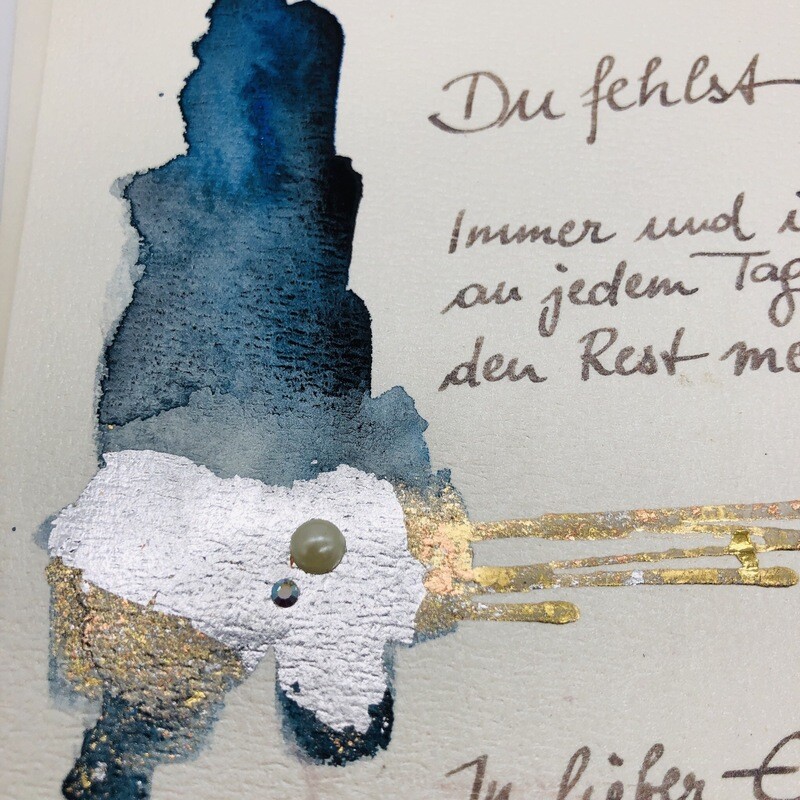 Du fehlst
Immer und
an jedem Tag
den Rest
In lieber